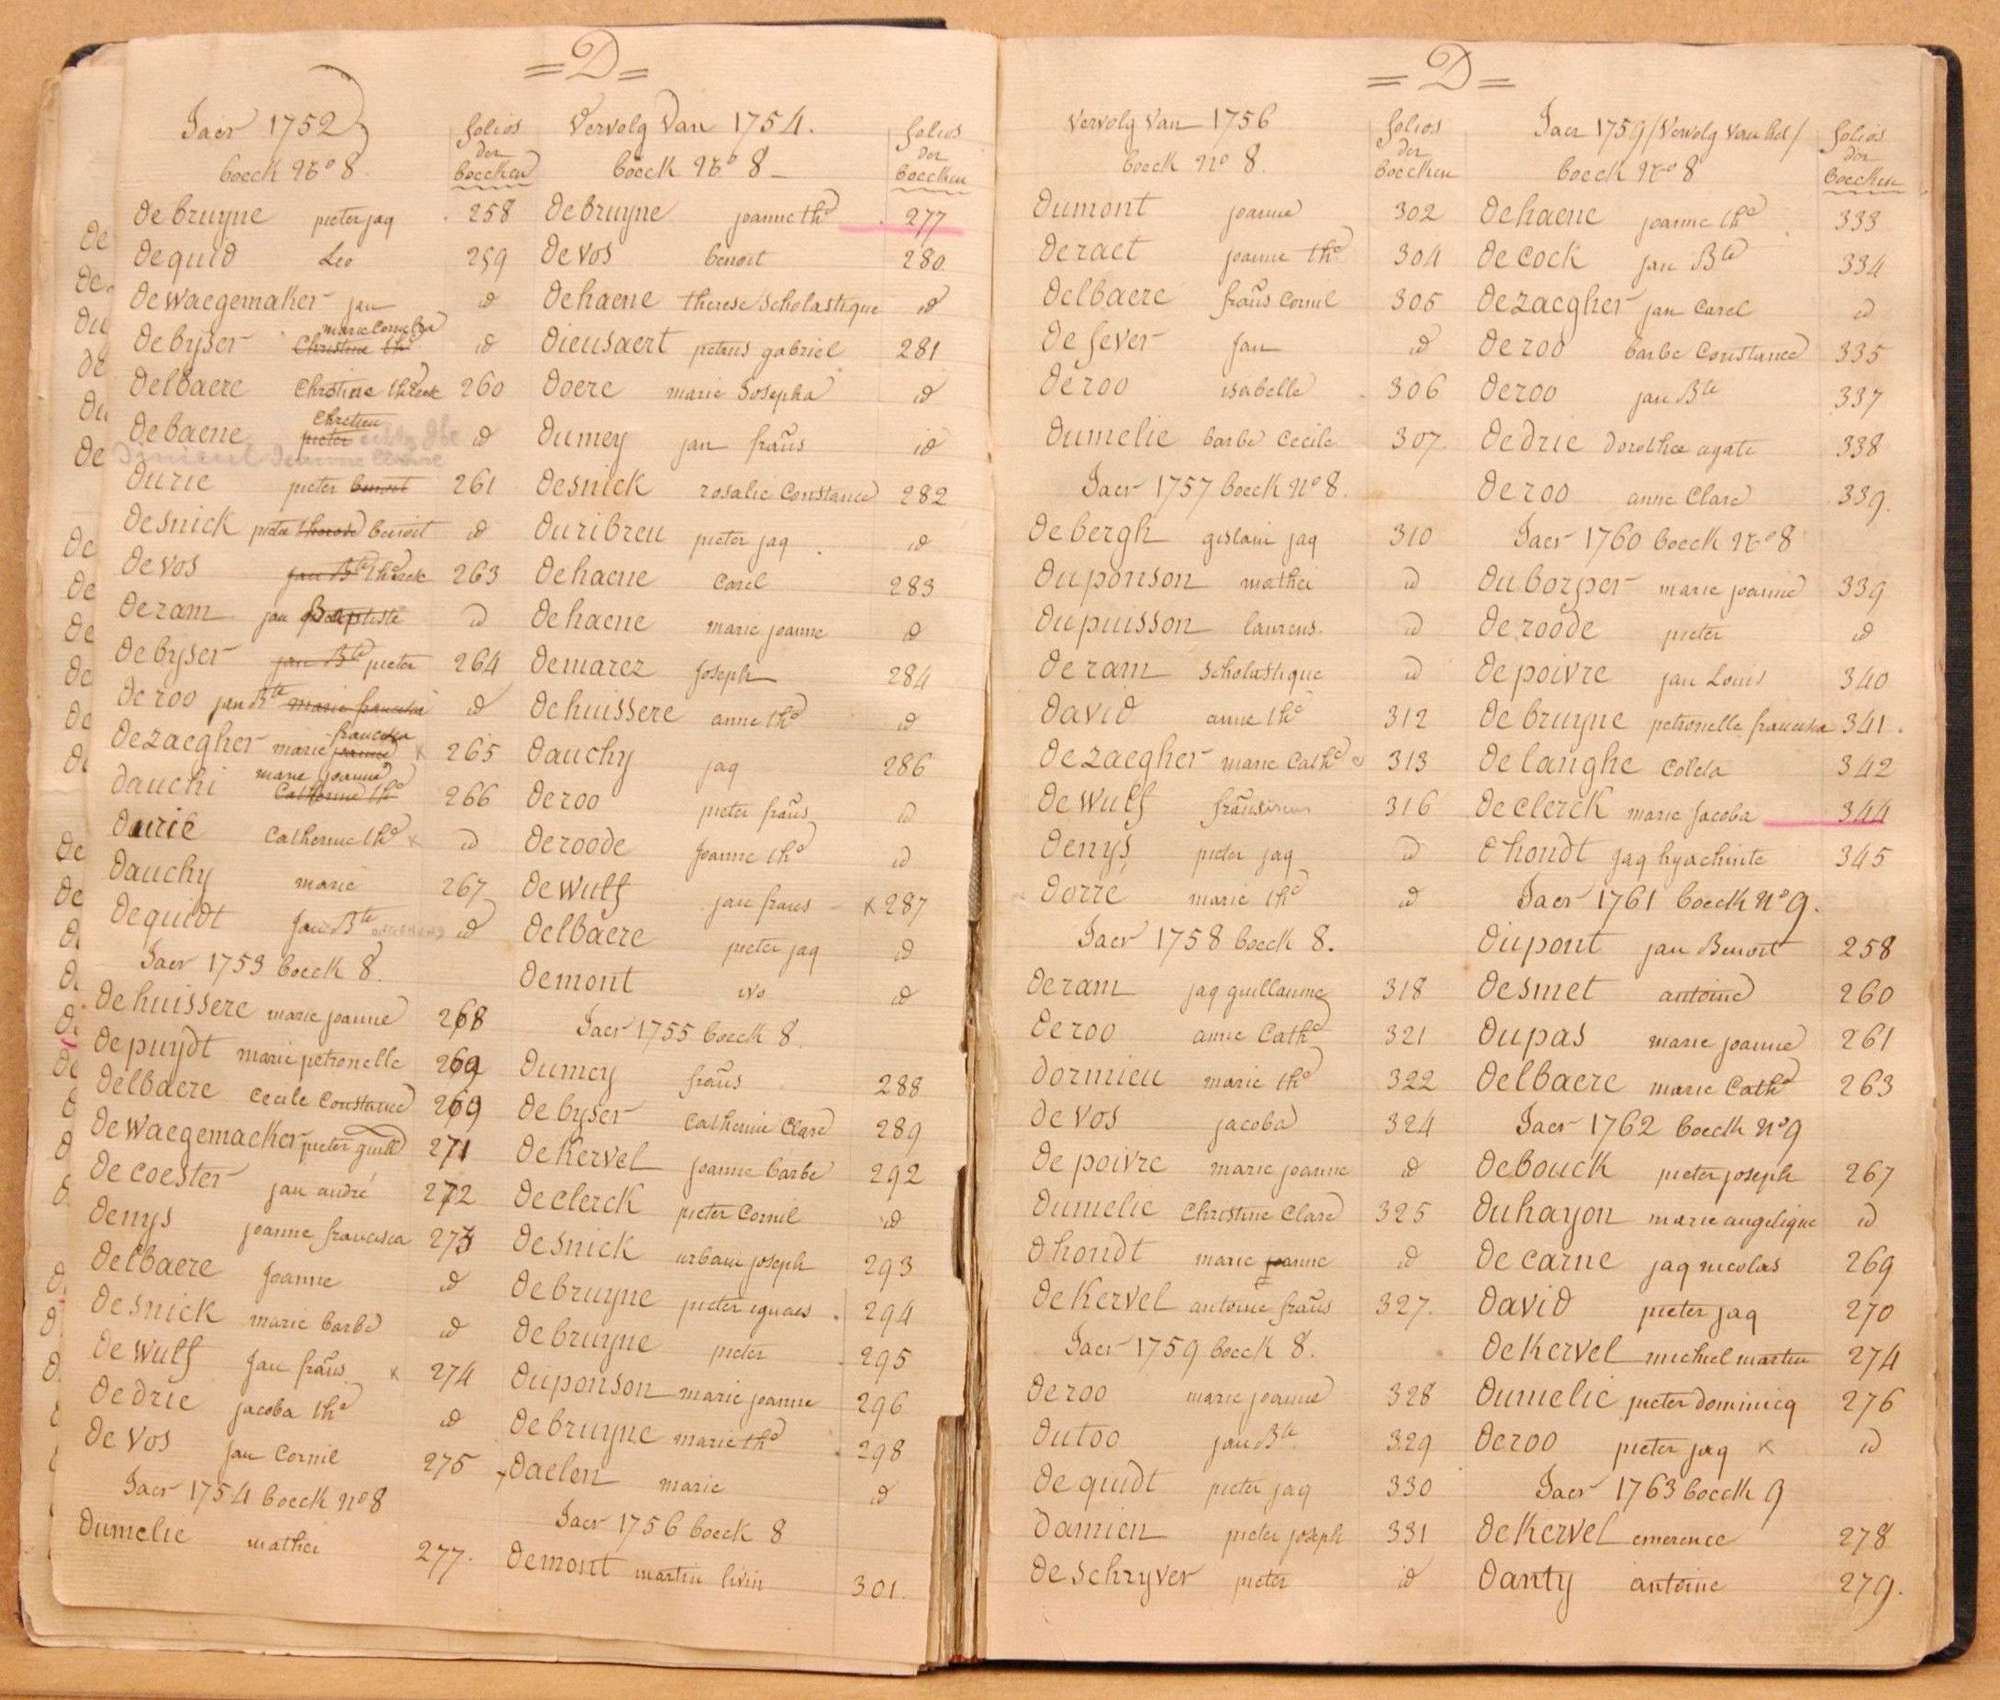 = D =
Jaer 1752
boeck Nro 8.
folios
der
boecken
de bruyne pieter jaq . 258
de quid Leo 259
de waegemaker jan id
marie Cornelia
de byser Christine thé id
delbaere Christine thérese 260
Chretien
de baene pieter id
durie pieter benoit 261
desnick pieter therese benoit id
de vos jan Bte thérese 263
de ram jan Baptiste id
de byser jan Bte pieter 264
de roo jan Bte marie francisca id
francisca
dezaegher marie joanne x 265
marie joanne
dauchi Catherine thé 266
durie Catherine thé x id
dauchy marie 267
dequidt Jan Bte id
Jaer 1753 boeck 8.
de huissere marie joanne 268
de puydt marie petronelle 269
delbaere Cecile Constance 269
de waegemacker pieter guill 271
de coester jan andré 272
denys joanne francisca 273
delbaere Joanne id
desnick marie barbe id
de wulf Jan frans x 274
dedrie jacoba thé id
de vos jan Cornil 275
Jaer 1754 boeck no 8
dumelie mathei 277.
Vervolg Van 1754.
boeck Nro 8 -
folios
der
boecken
de bruyne joanne thé . 277
de vos benoit 280
de haene therese Scholastique id
dieusaert petrus gabriel 281
doere marie Josepha id
dumey jan frans id
desnick rosalie Constance 282
duribreu pieter jaq . id
de haene Carel 283
de haene marie joanne id
demarez Joseph 284
de huissere anne thé id
dauchy jaq 286
de roo pieter frans id
de roode Joanne thé id
de wulf jan frans - x 287
delbaere pieter jaq id
demont ivo id
Jaer 1755 boeck 8.
dumey frans 288
de byser Catherine Clare 289
de Kervel joanne barbe 292
de clerck pieter Cornil id
desnick urbain joseph 293
de bruyne pieter ignaes . 294
de bruyne pieter . 295
duponson marie joanne 296
de bruyne marie thé . 298
daelen marie id
Jaer 1756 boeck 8
demont martin livin 301.
= D =
Vervolg Van 1756
boeck No 8.
folios
der
boecken
dumont joanne 302
de raet joanne thé 304
delbaere frans Cornil 305
de fever jan id
de roo isabelle 306
dumelie barbe Cecile 307
Jaer 1757 boeck No 8.
de bergh gislain jaq 310
duponson mathei id
dupuisson laurens id
de ram Scholastique id
david anne thé 312
dezaegher marie Cathe 313
de wulf 316
denys pieter jaq id
dorré marie thé id
Jaer 1758 boeck 8.
de ram jaq guillaume 318
de roo anne Cathe 321
dormieu marie thé 322
de vos jacoba 324
de poivre marie joanne id
dumelie Christine Clare 325
dhondt marie joanne id
de Kervel antoine frans 327.
Jaer 1759 boeck 8.
de roo marie joanne 328
dutoo jan Bte 329
de quidt pieter jaq 330
damien pieter joseph 331
de schryver pieter id
Jaer 1759 / Vervolg Van bd /
boeck Nro 8
folios
der
boecken
de haene joanne thé 333
de Cock jan Bte 334
dezaegher jan Carel id
de roo barbe Constance 335
de roo jan Bte 337
dedrie dorothee agate 338
de roo anne Clare 339.
Jaer 1760 boeck Nro 8
duborper marie joanne 339
de roode pieter id
de poivre jan Louis 340
de bruyne petronelle francisca 341.
de langhe Coleta 342
de clerck marie Jacoba 344
dhondt jaq hyachinte 345
Jaer 1761 boeck No 9.
dupont jan Benoit 258
desmet antoine 260
dupas marie joanne 261
delbaere marie Cathe 263
Jaer 1762 boeck No 9
debouck pieter joseph 267
duhayon marie angelique id
de carne jaq nicolas 269
david pieter jaq 270
de Kervel michiel martin 274
dumelie pieter dominicq 276
de roo pieter jaq x id
Jaer 1763 boeck 9
de Kervel emerence 278
danty antoine 279.